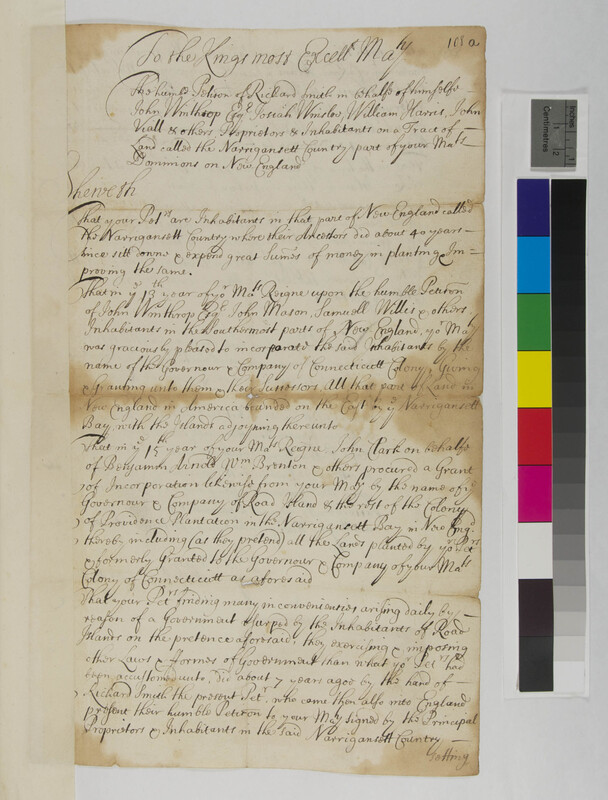 108 a
To the Kings most Excell.t Ma.ty
The humble Petition of Richard Smith in behalfe of himselfe
John Winthrop Esq.r Josiah Winslow, William Harris, John
Viall & others Proprietors & Inhabitants on a Tract of
Land called the Narrigansett Country part of your Ma.ts
Dominions on New England
Sheweth
That your Pet.rs are Inhabitants in that part of New England called
the Narrigansett Country where their Ancestors did about 40 years
since sett downe & expend great Summes of money in planting & Im=
proving the same.
That in y.e 13th year of yo.r Ma.ts Reigne upon the humble Petition
of John Winthrop Esq.r John Mason, Samuell Willis & others
Inhabitants in the Southermost parts of New England, yo.r Ma.ty
was graciously pleased to incorporate the said Inhabitants by the
name of the Governour & Company of Connecticutt Colony, Giveing
& Granting unto them & their Successors All that part of Land in
New England in America bounded on the East by y.e Narrigansett
Bay, with the Islands adjoyning thereunto
That in y.e 15th year of your Ma.ts Reigne, John Clark on behalfe
of Benjamin Arnold W.m Brenton & others procured a Grant
of Incorporation likewise from your Ma.ty by the name of y.e
Governour & Company of Road Island & the rest of the Colony
of Providence Plantation in the Narrigansett Bay in New Eng.d
thereby including (as they pretend) all the Lands planted by yo.r Pet.rs
& formerly Granted to the Governour & Company of your Ma.ts
Colony of Connecticutt as aforesaid
That your Pet.rs finding many inconveniencies arising daily by
reason of a Government usurped by the Inhabitants of Road
Island on the pretence aforesaid, they exercising & imposing
other Laws & formes of Government than what yo.r Pet.rs had
been accustomed unto, did about 7 years agoe by the hand of
Richard Smith the present Pet.r who came then also into England
present their humble Petition to your Ma.ty signed by the Principal
Proprietors & Inhabitants in the said Narrigansett Country
Setting
Inches
Centimetres
1
2